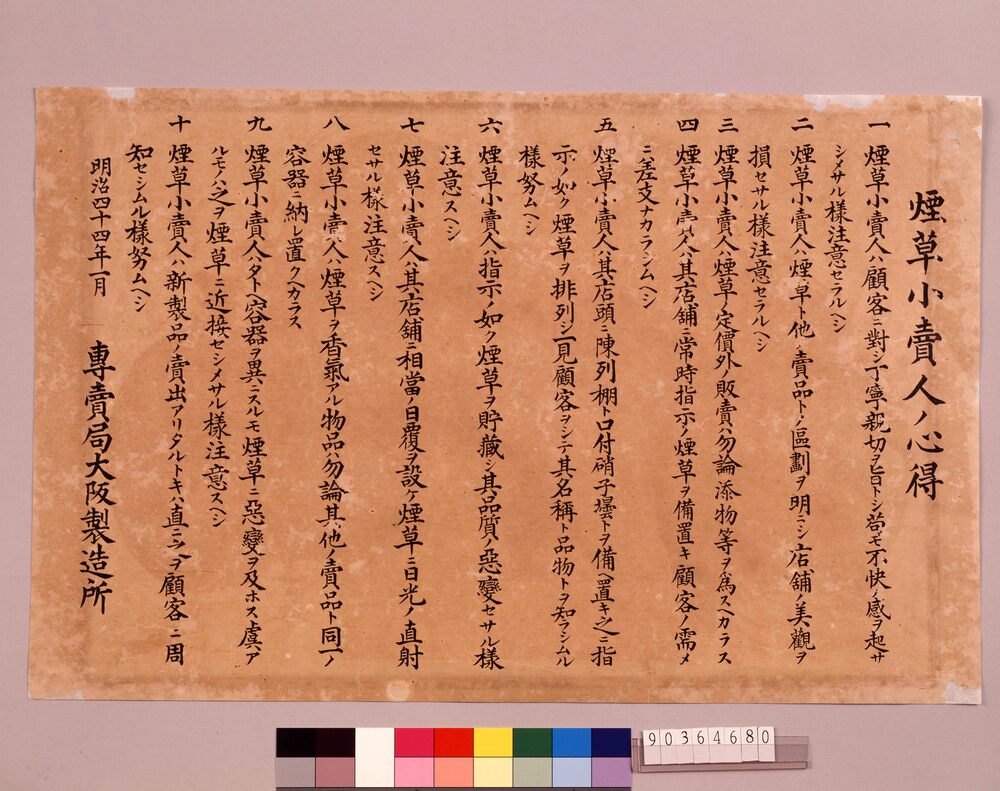 煙草小賣人ノ心得
一 煙草小賣人ハ顧客ニ對シ丁寧親切ヲ旨トシ苟モ不快ノ感ヲ起サ
シメサル樣注意セラルヘシ
二 煙草小賣人ハ煙草ト他ノ賣品トノ區劃ヲ明ニシ店舖ノ美觀ヲ
損セサル樣注意セラルヘシ
三 煙草小賣人ハ煙草ノ定價外販賣ハ勿論添物等ヲ爲スヘカラス
四 煙草小賣人ハ其店舖ニ常時指示ノ煙草ヲ備置キ顧客ノ需メ
ニ差支ナカラシムヘシ
五 煙草小賣人ハ其店頭ニ陳列棚ト口付硝子壜トヲ備置キ之ニ指
示ノ如ク煙草ヲ排列シ一見顧客ヲシテ其名稱ト品物トヲ知ラシムル
樣努ムヘシ
六 煙草小賣人ハ指示ノ如ク煙草ヲ貯藏シ其品質ノ惡變セサル樣
注意スヘシ
七 煙草小賣人ハ其店舖ニ相當ノ日覆ヲ設ケ煙草ニ日光ノ直射
セサル樣注意スヘシ
八 煙草小賣人ハ煙草ヲ香氣アル物品ハ勿論其他ノ賣品ト同一ノ
容器ニ納レ置クヘカラス
九 煙草小賣人ハタトヘ容器ヲ異ニスルモ煙草ニ惡變ヲ及ホス虞ア
ルモノハ之ヲ煙草ニ近接セシメサル樣注意スヘシ
十 煙草小賣人ハ新製品ノ賣出アリタルトキハ直ニ之ヲ顧客ニ周
知セシムル樣努ムヘシ
明治四十四年一月
專賣局大阪製造所
90364680